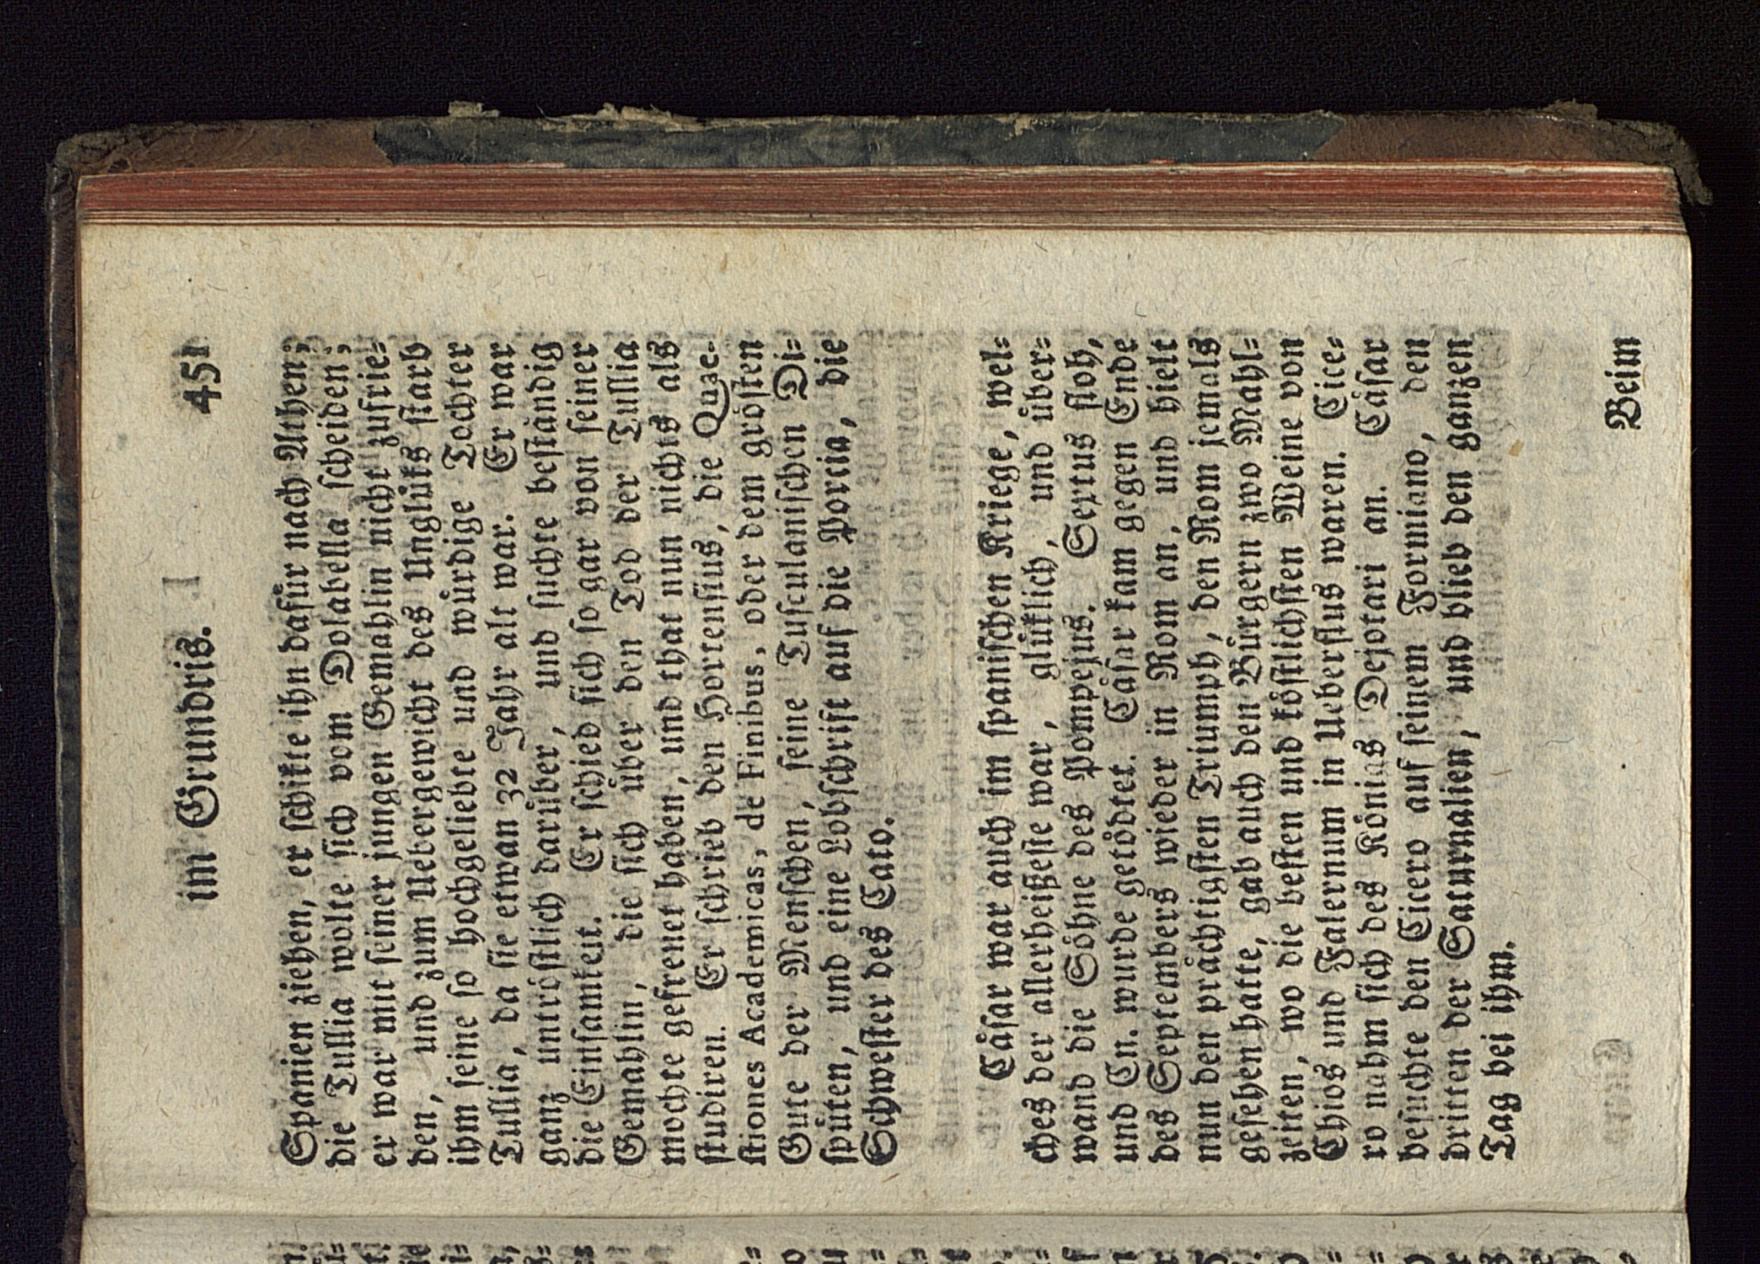 im Grundris. 451
Spanien ziehen, er schikte ihn dafür nach Athen;
die Tullia wolte sich vom Dolabella scheiden;
er war mit seiner jungen Gemahlin nicht zufrie=
den, und zum Uebergewicht des Unglüks starb
ihm seine so hochgeliebte und würdige Tochter
Tullia, da sie etwan 32 Jahr alt war. Er war
ganz untröstlich darüber, und suchte beständig
die Einsamkeit. Er schied sich so gar von seiner
Gemahlin, die sich über den Tod der Tullia
mochte gefreuet haben, und that nun nichts als
studiren. Er schrieb den Hortensius, die Quae-
stiones Academicas, de Finibus, oder dem grösten
Gute der Menschen, seine Tusculanischen Di=
spüten, und eine Lobschrift auf die Porcia, die
Schwester des Cato.
Cäsar war auch im spanischen Kriege, wel=
ches der allerheißeste war, glüklich, und über=
wand die Söhne des Pompejus. Sextus floh,
und Cn. wurde getödtet. Cäsar kam gegen Ende
des Septembers wieder in Rom an, und hielt
nun den prächtigsten Triumph, den Rom jemals
gesehen hatte, gab auch den Bürgern zwo Mahl=
zeiten, wo die besten und köstlichsten Weine von
Chios und Falernum in Ueberflus waren. Cice=
ro nahm sich des Königs Dejotari an. Cäsar
besuchte den Cicero auf seinem Formiano, den
dritten der Saturnalien, und blieb den ganzen
Tag bei ihm.
Beim